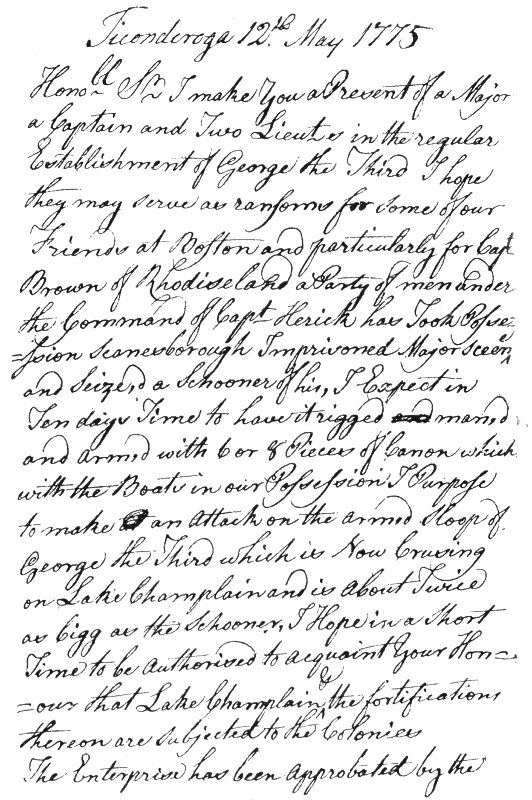 Ticonderoga 12.th May 1775
Honobll Sr I make You a Present of a Major
a Captain and Two Lieuts in the regular
Establishment of George the Third I hope
they may serve as ransoms for some of our
Friends at Boston and particularly for Capt
Brown of Rhodiseland a Party of men under
the Command of Capt Herick has Took Posse=
=ssion Scanesborough Imprisoned Major Sceen
and Seize,d a Schooner of his, I Expect in
Ten days Time to have it rigged and man,d
and armd with 6 or 8 Pieces of Canon which
with the Boats in our Possession I Purpose
to make an Attack on the armd Sloop of
George the Third which is Now Cruising
on Lake Champlain and is About Twice
as bigg as the Schooner, I Hope in a Short
Time to be Authorised to acquaint Your Hon=
=our that Lake Champlain & the fortifications
thereon are subjected to the Colonies
The Enterprise has been approbated by the